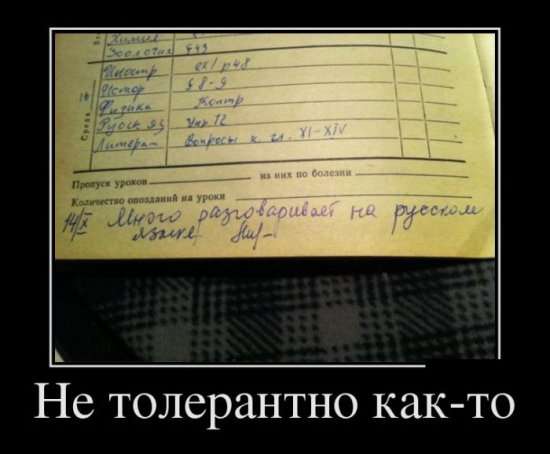 Химия
Зоология §49
Иностр ex1 p48
Среда 16
Истор §8-9
Физика Контр
Русск яз Упр. 12
Литерат Вопросы к гл. XI-XIV
Пропуск уроков из них по болезни
Количество опозданий на уроки
14/X Много разговаривает на русском
языке
Не толерантно как-то